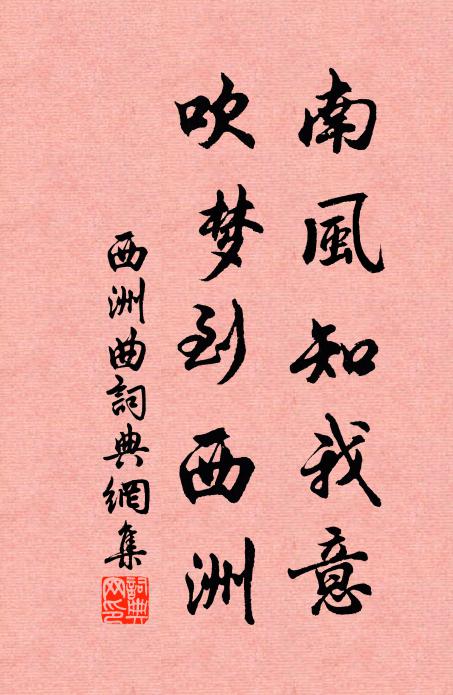 南風知我意
吹梦到西洲
西洲曲詞典網集
詞典网印